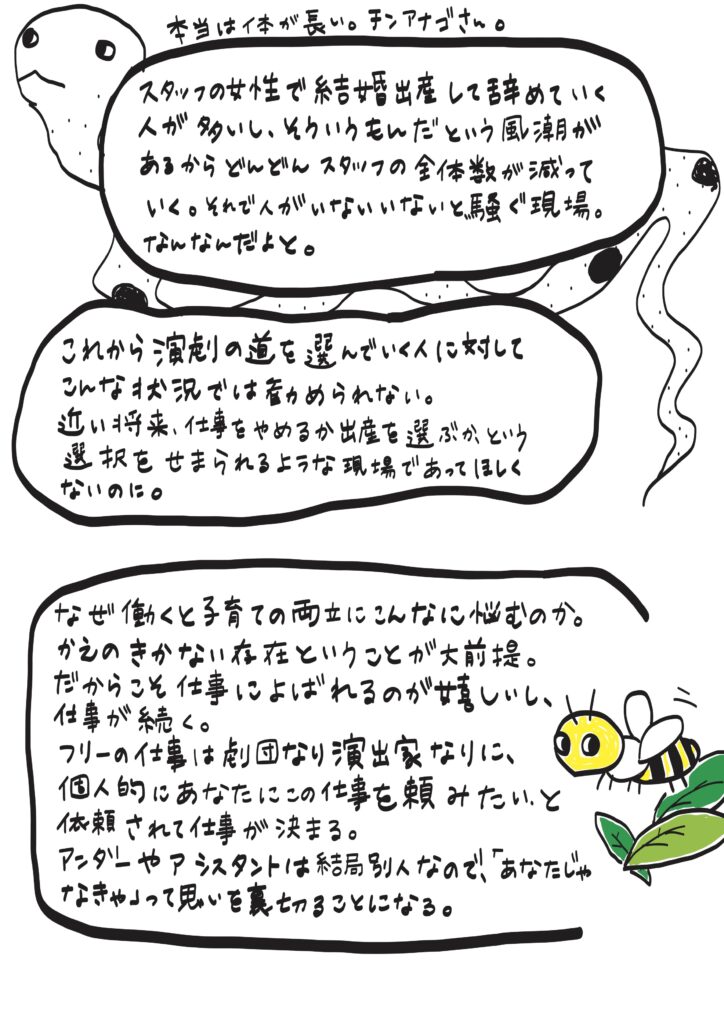 本当は体が長い。チンアナゴさん。
スタッフの女性で結婚出産して辞めていく
人が多いし、そういうもんだという風潮が
あるからどんどんスタッフの全体数が減って
いく。それで人がいないいないと騒ぐ現場。
なんなんだよと。
これから演劇の道を選んでいく人に対して
こんな状況では勧められない。
近い将来、仕事をやめるか出産を選ぶか、という
選択をせまられるような現場であってほしく
ないのに。
なぜ働くと子育ての両立にこんなに悩むのか。
かえのきかない存在ということが大前提。
だからこそ仕事によばれるのが嬉しいし、
仕事が続く。
フリーの仕事は劇団なり演出家なりに、
個人的にあなたにこの仕事を頼みたいと
依頼されて仕事が決まる。
アンダーやアシスタントは結局別人なので、「あなたじゃ
なきゃ」って思いを裏切ることになる。